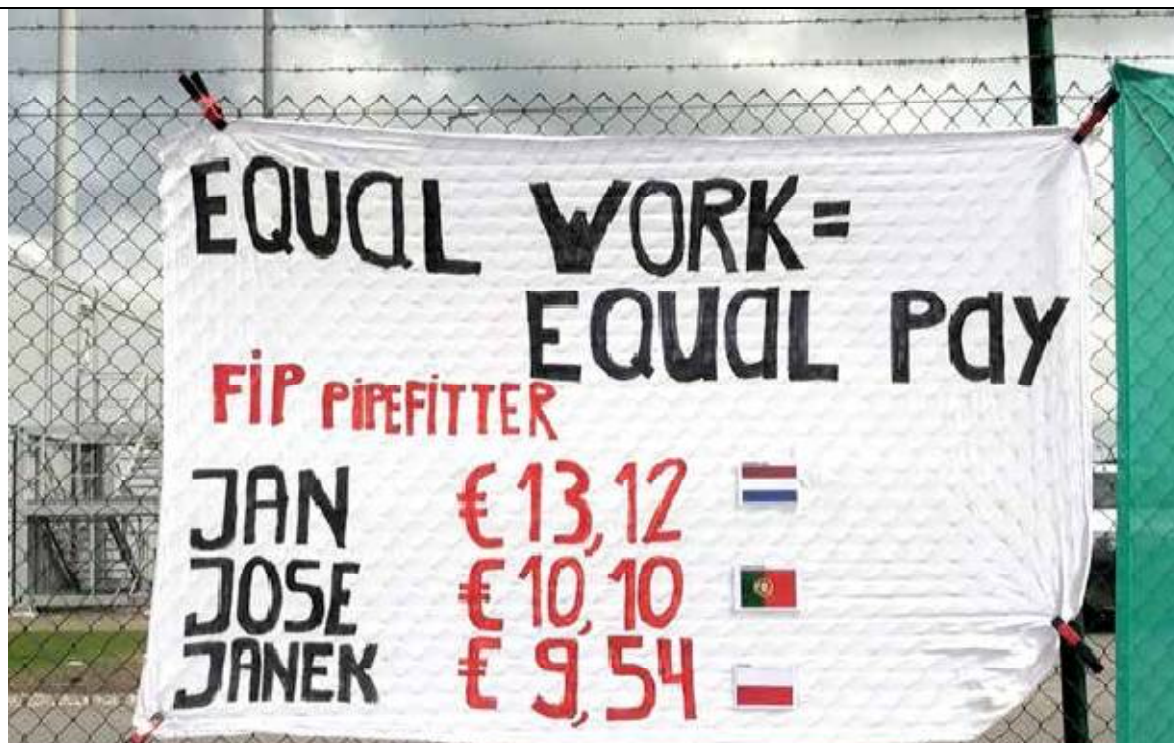 EQUAL WORK=
EQUAL PAY
FIP PIPEFITTER
JAN € 13,12
JOSE € 10,10
JANEK € 9,54